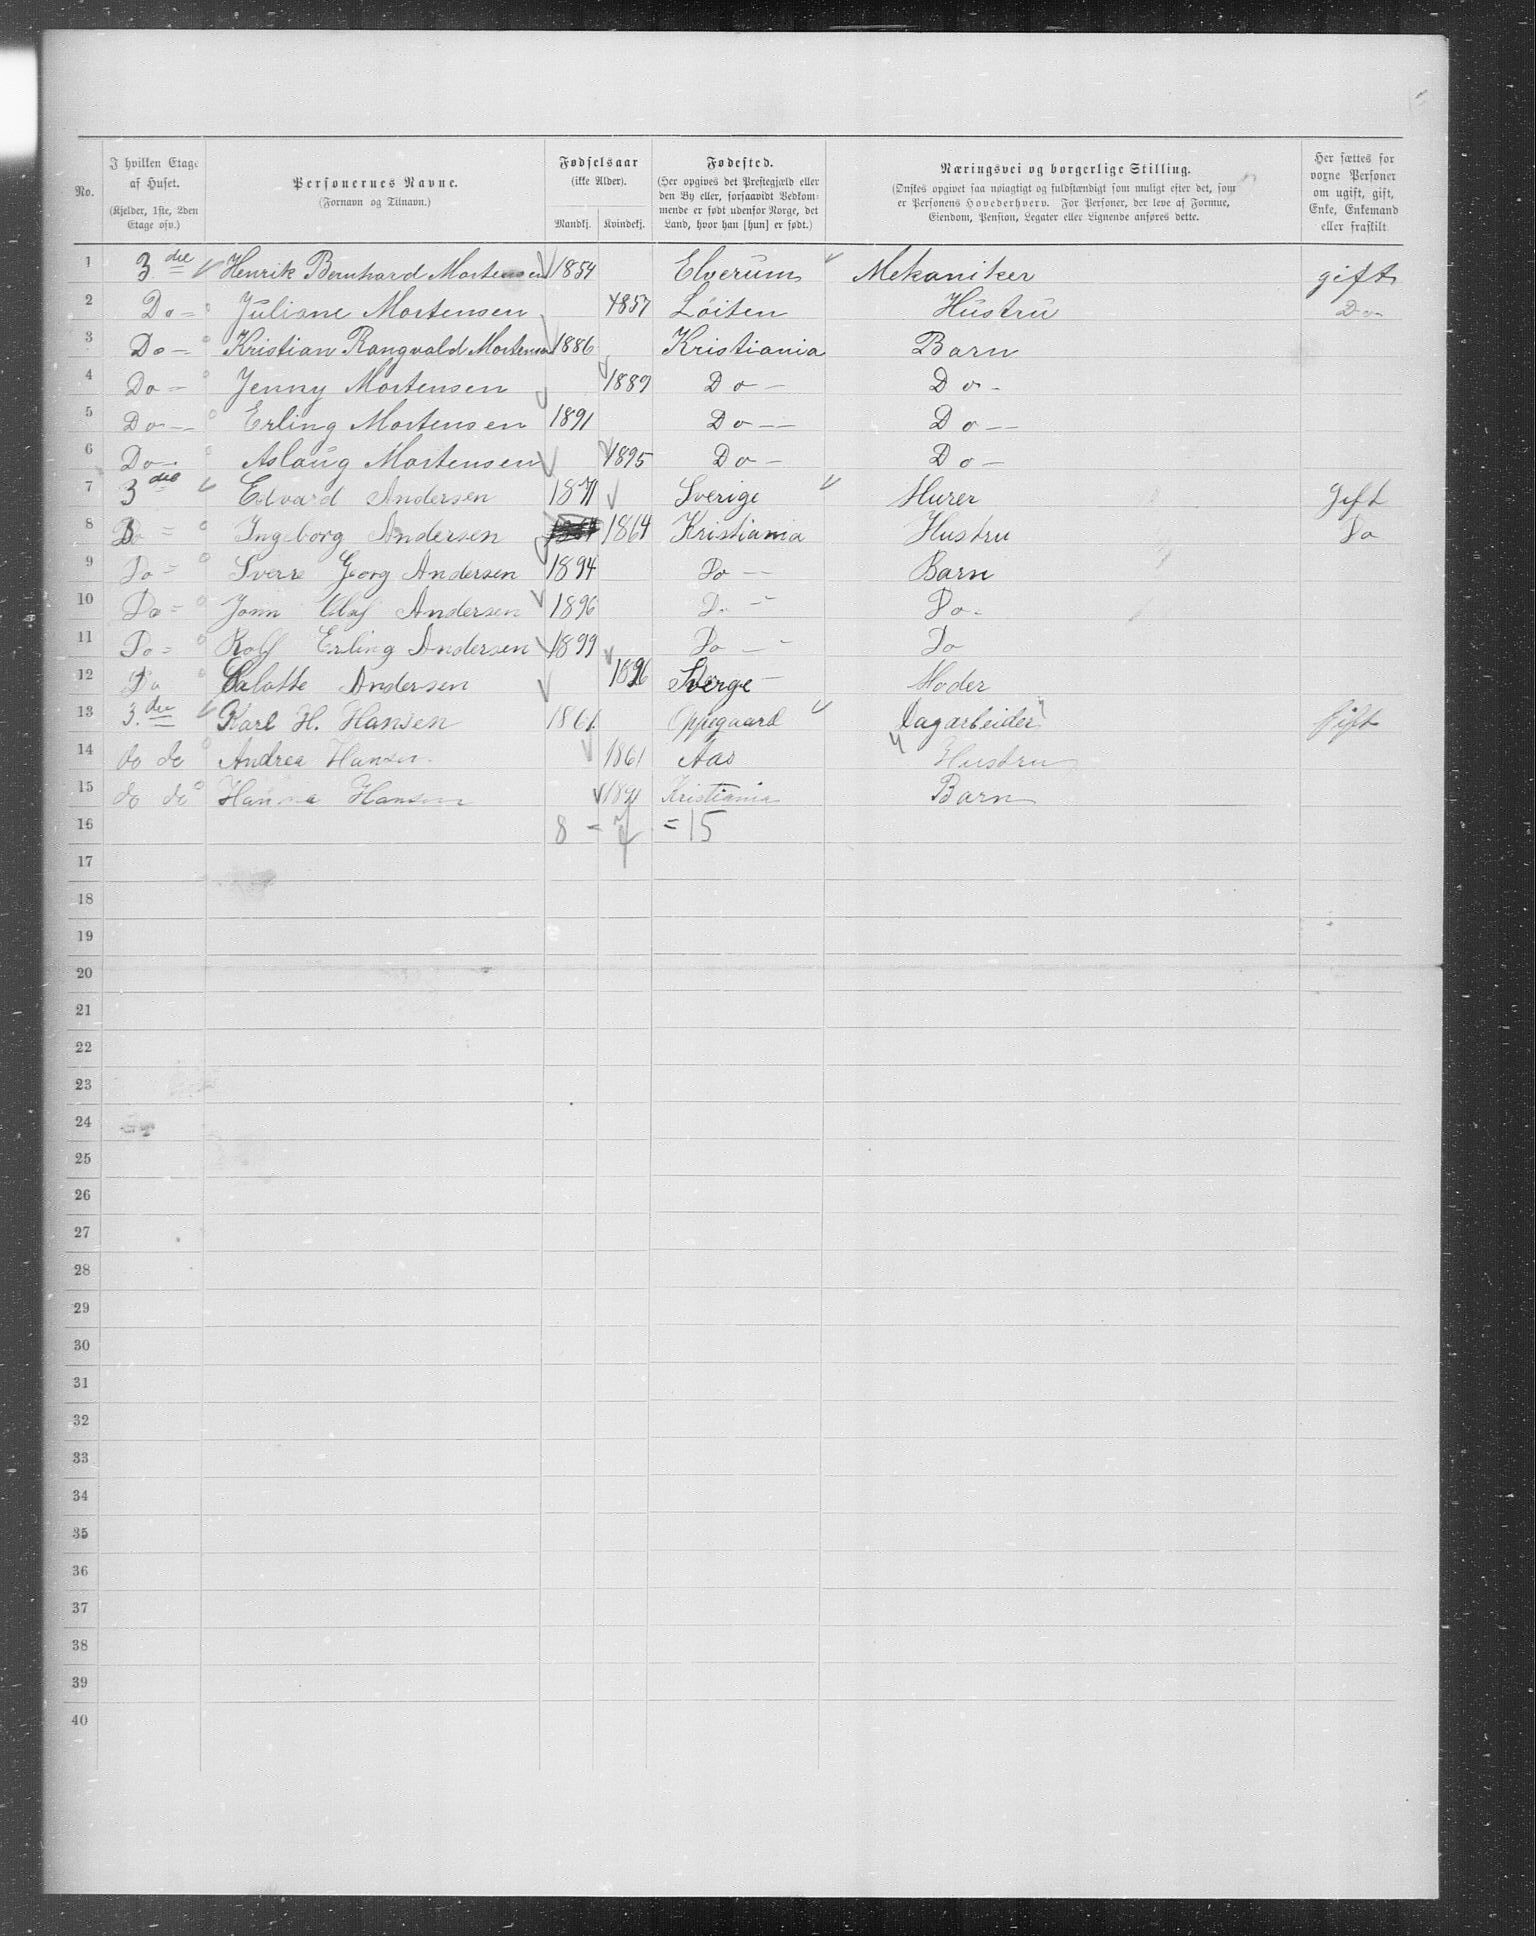 No.
I hvilken Etage af Huset.
(Kjelder, 1ste, 2den Etage osv.)
Personernes Navne.
(Fornavn og Tilnavn.)
Fødselsaar
(ikke Alder).
Mandkj. Kvindekj.
Fødested.
(Her opgives det Prestegjæld eller den By eller, forsaavidt Vedkommende er født udenfor Norge, det Land, hvor han [hun] er født.)
Næringsvei og borgerlige Stilling.
(Ønskes opgivet saa nøiagtigt og fuldstændigt som muligt efter det, som er Personens Hovederhverv. For Personer, der leve af Formue, Eiendom, Pension, Legater eller Lignende anføres dette.
Her sættes for voxne Personer om ugift, gift, Enke, Enkemand eller fraskilt
1 3die Henrik Bernhard Mortensen 1854 Elverum Mekaniker gift
2 Do Juliane Mortensen 1857 Løiten Hustru Do
3 Do Kristian Rangvald Mortensen 1886 Kristiania Barn
4 Do Jenny Mortensen 1889 Do Do
5 Do Erling Mortensen 1891 Do Do
6 Do Aslaug Mortensen 1895 Do Do
7 3die Edvard Andersen 1871 Sverige Murer Gift
8 Do Ingeborg Andersen 1864 Kristiania Hustru Do
9 Do Sverre Georg Andersen 1894 Do Barn
10 Do Olaf Andersen 1896 Do Do
11 Do Rolf Erling Andersen 1899 Do Do
12 Do Andersen Sverge Moder
13 3.die Karl H. Hansen 1861 Oppegaard Dagarbeider Gift
14 do do Andrea Hansen 1861 Aas Hustru
15 do do Hanna Hansen 1891 Kristiania Barn
16 8 - 7 = 15
17
18
19
20
21
22
23
24
25
26
27
28
29
30
31
32
33
34
35
36
37
38
39
40